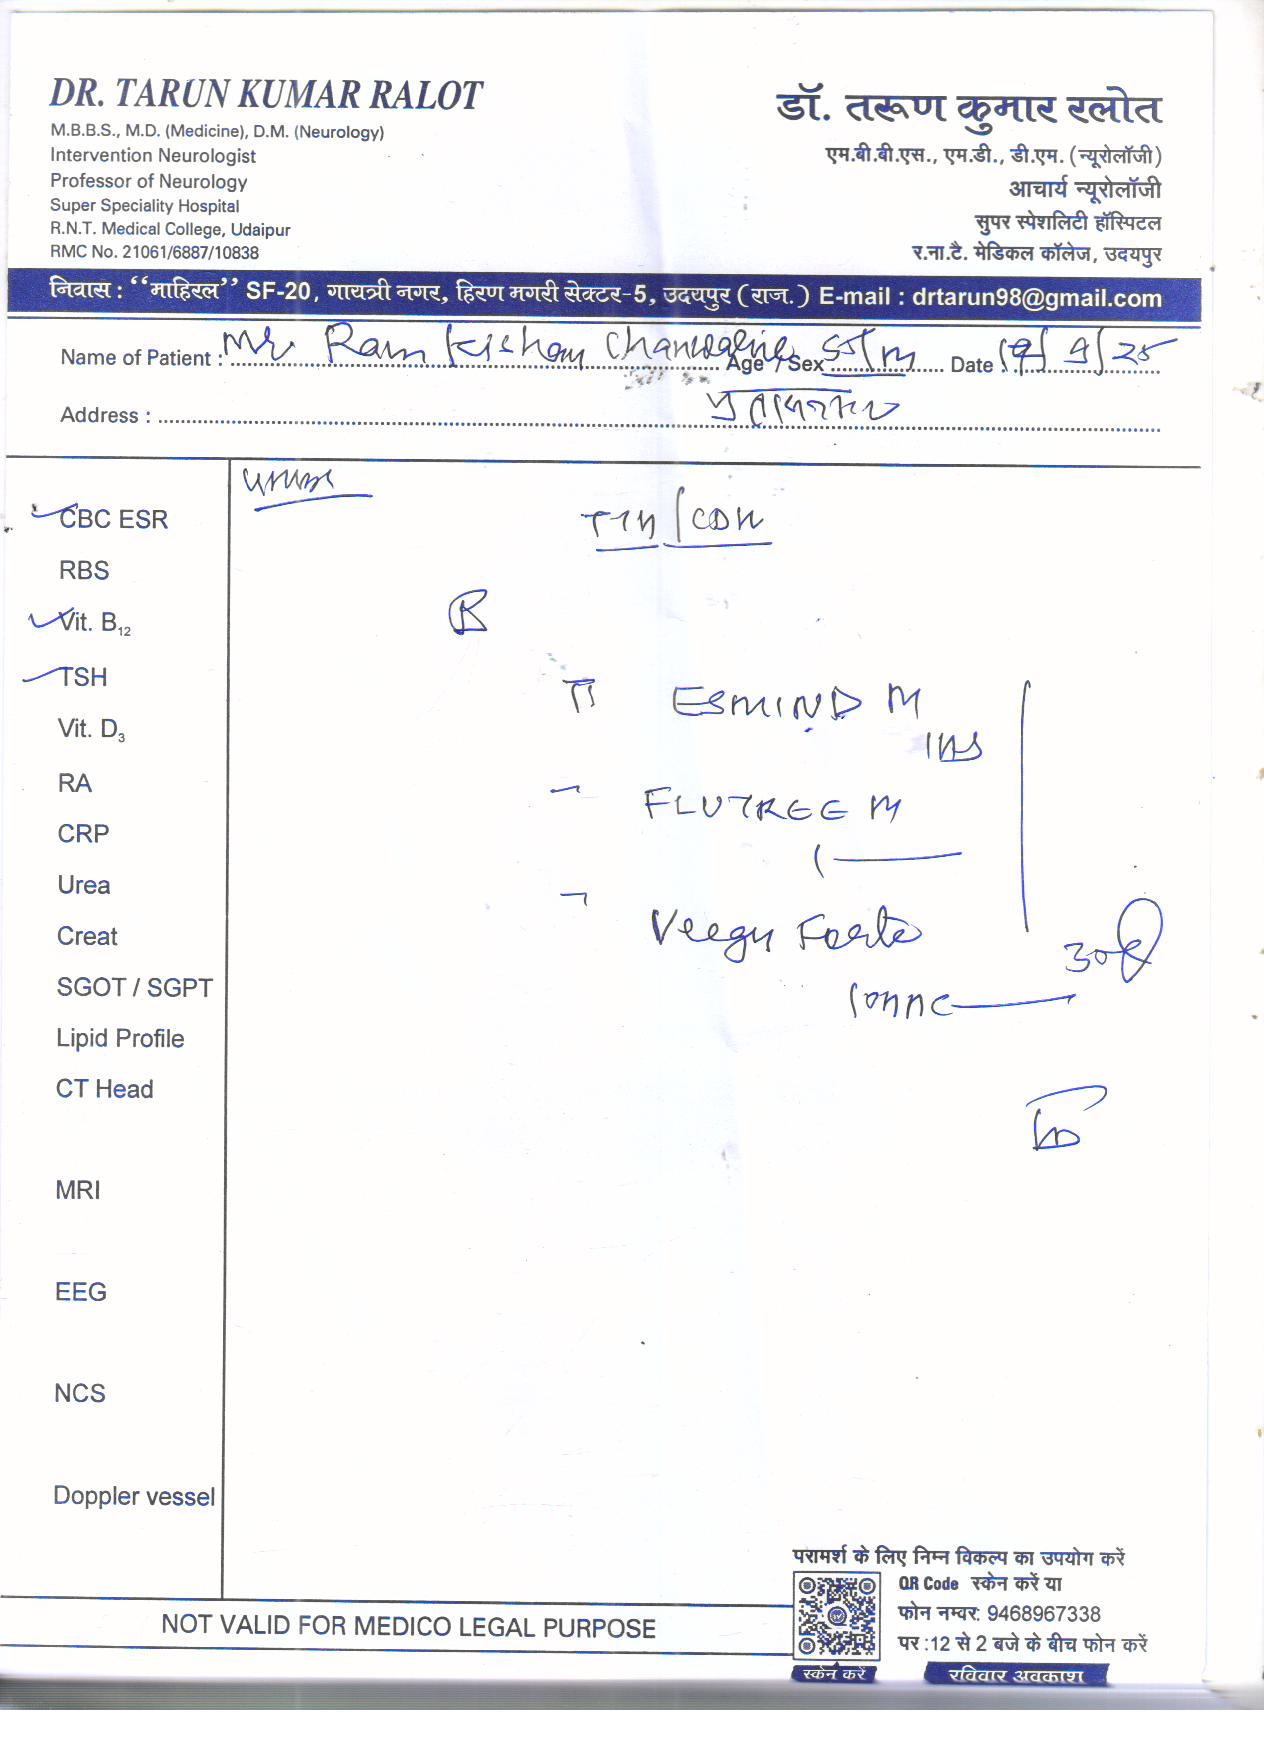 DR. TARUN KUMAR RALOT
M.B.B.S., M.D. (Medicine), D.M. (Neurology)
Intervention Neurologist
Professor of Neurology
Super Speciality Hospital
R.N.T. Medical College, Udaipur
RMC No. 21061/6887/10838
डॉ. तरूण कुमार रलोत
एम.बी.बी.एस., एम.डी., डी.एम. (न्यूरोलॉजी)
आचार्य न्यूरोलॉजी
सुपर स्पेशलिटी हॉस्पिटल
र.ना.टै. मेडिकल कॉलेज, उदयपुर
निवास : "माहिरल" SF-20, गायत्री नगर, हिरण मगरी सेक्टर-5, उदयपुर (राज.) E-mail : drtarun98@gmail.com
Name of Patient : Mr Ram Kishan Age / Sex Date
Address :
CBC ESR
RBS
Vit. B12
TSH
Vit. D3
RA
CRP
Urea
Creat
SGOT / SGPT
Lipid Profile
CT Head
MRI
EEG
NCS
Doppler vessel
R
ESMIND M
FLUTREE M
Veegy Forte
NOT VALID FOR MEDICO LEGAL PURPOSE
परामर्श के लिए निम्न विकल्प का उपयोग करें
QR Code स्केन करें या
फोन नम्वर: 9468967338
पर :12 से 2 बजे के बीच फोन करें
स्केन करें
रविवार अवकाश